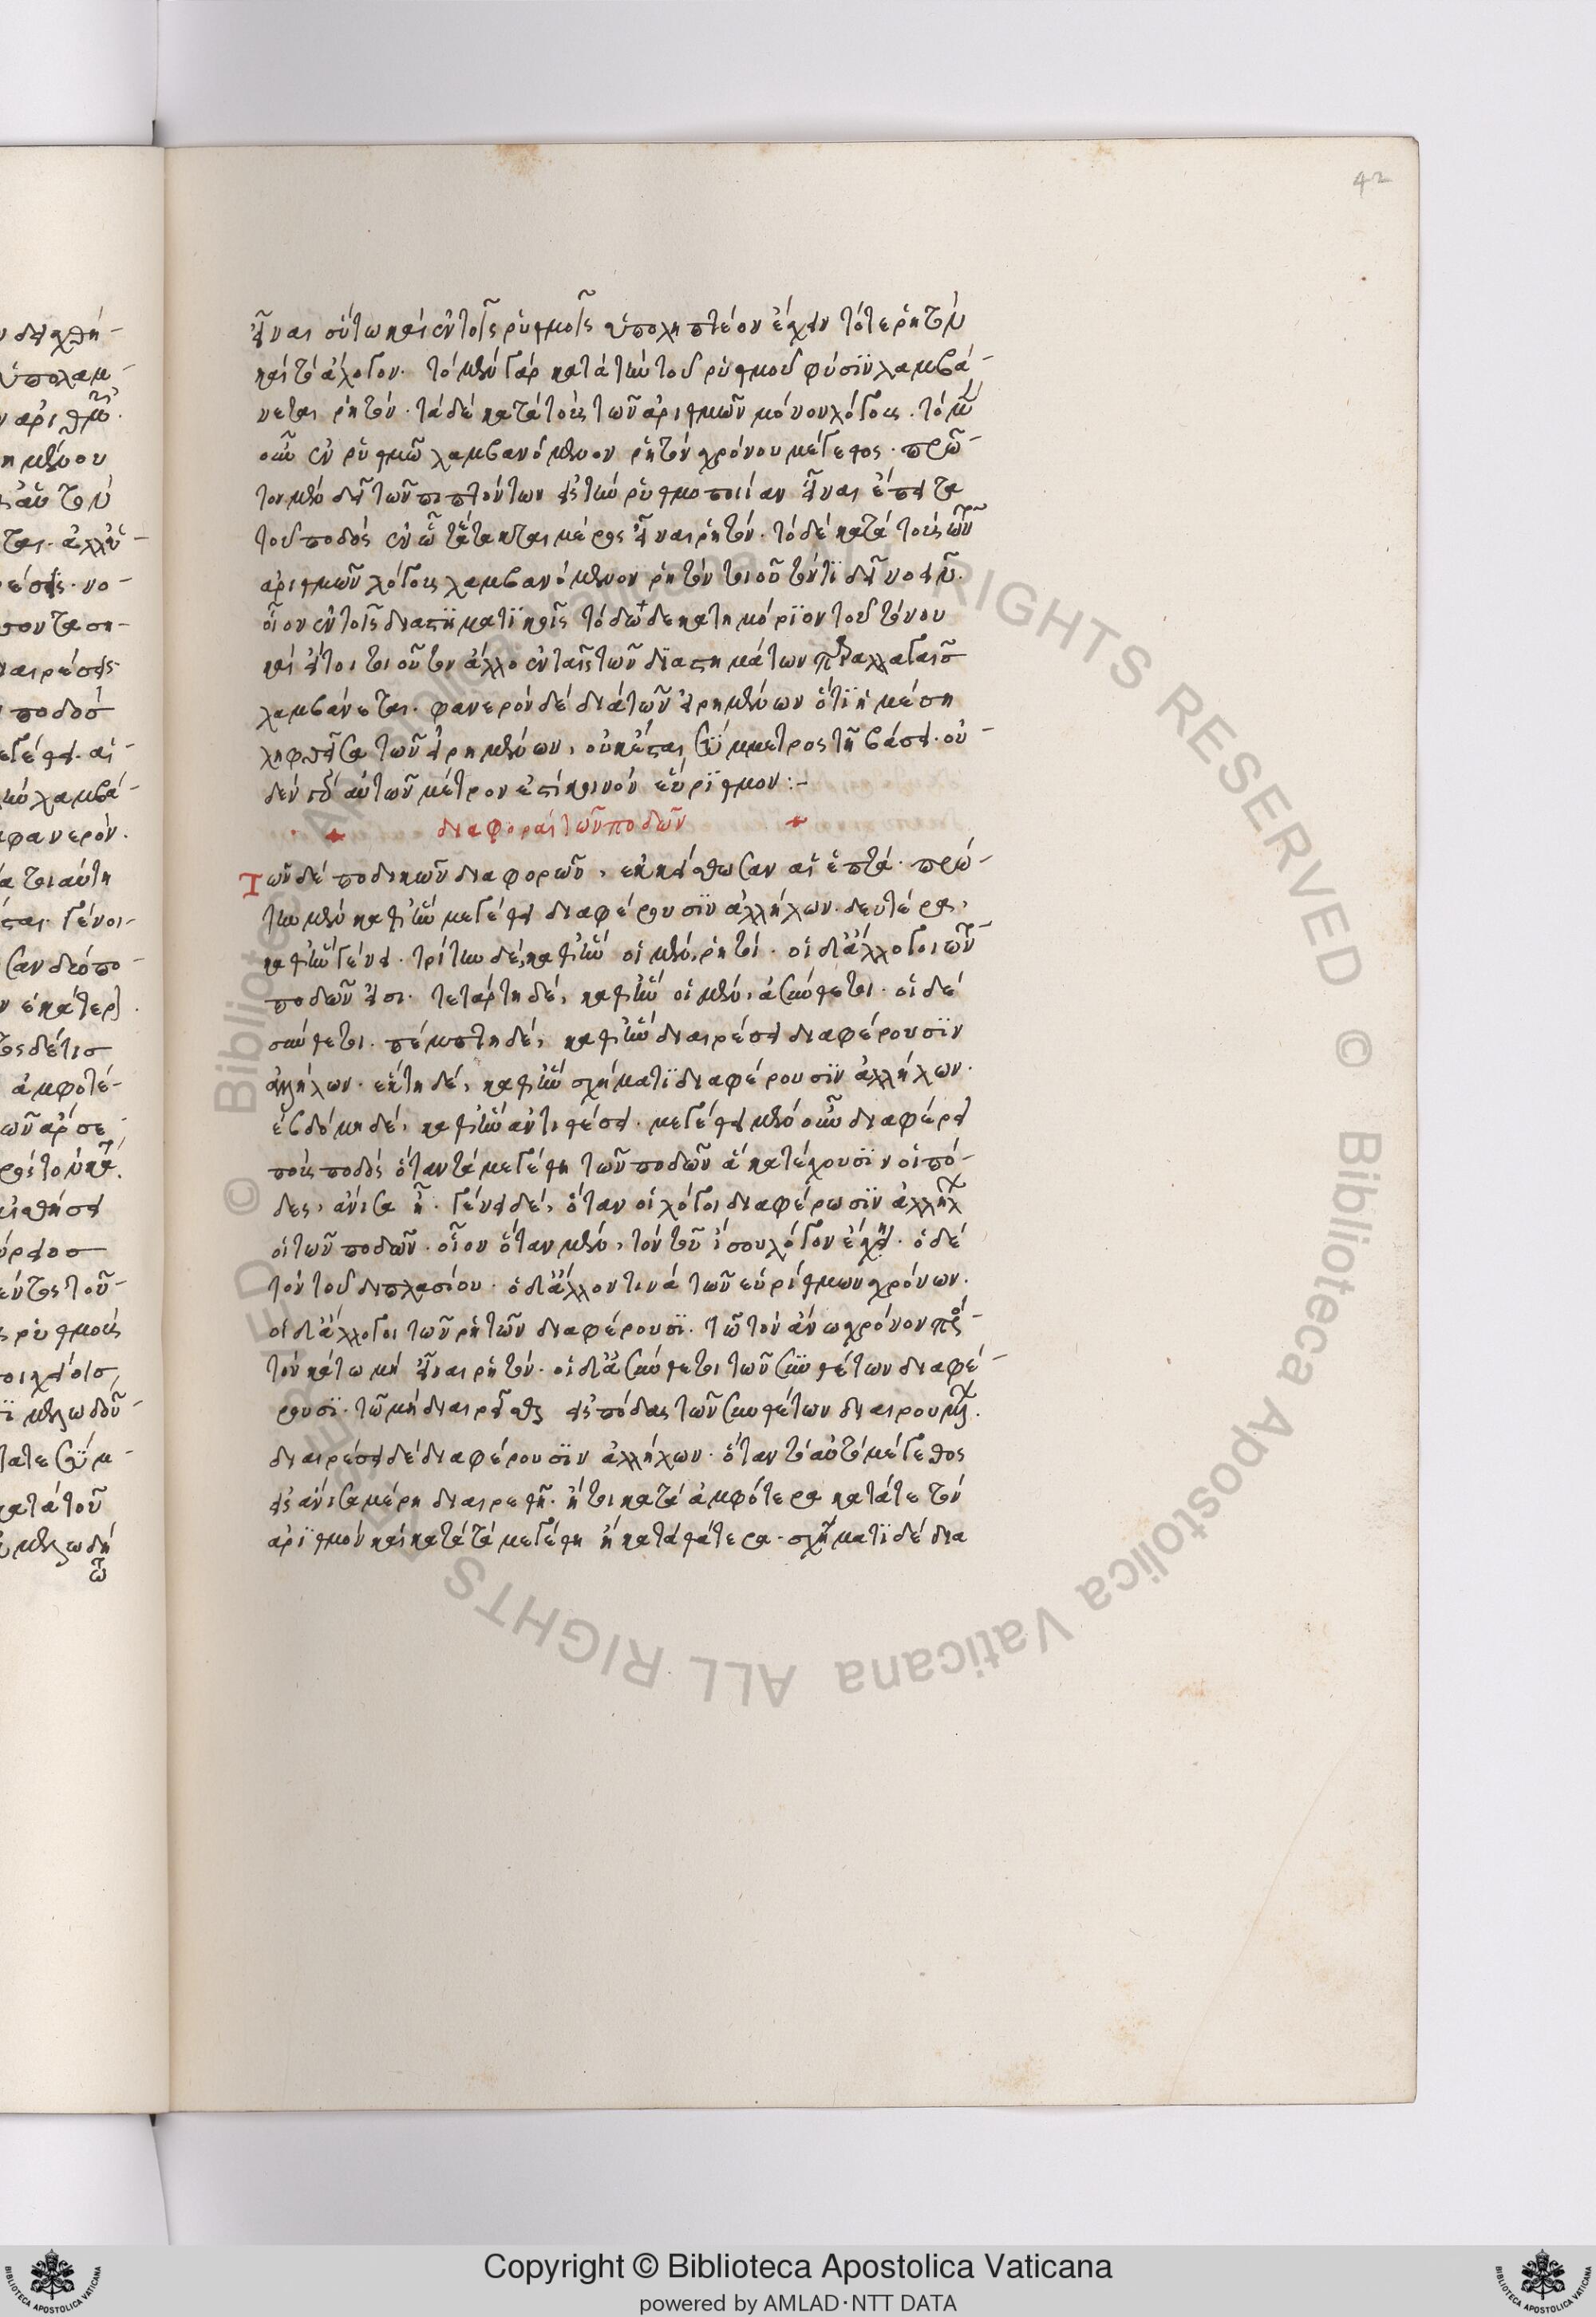 42
εἶναι οὕτω καὶ ἐν τοῖς ῥυθμοῖς ὑποληπτέον ἔχειν τό τε ῥητὸν
καὶ τὸ ἄλογον. τὸ μὲν γὰρ κατὰ τὴν τοῦ ῥυθμοῦ φύσϊν λαμβά-
νεται ῥητόν. τὰ δὲ κατὰ τοὺς τῶν ἀριθμῶν μόνου λόγους. τὸ μὲν
οὖν ἐν ῥυθμῶ λαμβανόμενον ῥητὸν χρόνου μέγεθος. πρῶ-
τον μὲν δεῖ τῶν πιπτόντων εἰς τὴν ῥυθμοποιίαν εἶναι ἔπειτα
τοῦ ποδὸς ἐν ὧ τέτακται μέρος εἶναι ῥητόν. τὸ δὲ κατὰ τοὺς τῶν
ἀριθμῶν λόγους λαμβανόμενον ῥητὸν τοιοῦτόν τϊ δεῖ νοεῖν.
οἷον ἐν τοῖς διαστηματϊκοῖς τὸ δωδεκατημόρϊον τοῦ τόνου
καὶ εἴ τοι τοιοῦτον ἄλλο ἐν ταῖς τῶν διαστημάτων παραλλαγαῖς
λαμβάνεται. φανερὸν δὲ διὰ τῶν εἰρημένων ὅτϊ ἡ μέση
ληφθεῖσα τῶν εἰρημένων, οὐκ ἔσται σϋμμετρος τῆ βάσει. οὐ-
δὲν γὰρ αὐτῶν μέτρον ἐστὶ κοινὸν εὔρϊθμον:-
διαφοραὶ τῶν ποδῶν
Τῶν δὲ ποδικῶν διαφορῶν, ἐκκείσθωσαν αἱ ἑπτά. πρώ-
την μὲν καθ' ἣν μεγέθει διαφέρουσϊν ἀλλήλων. δευτέρας,
καθ' ἣν γένει. τρίτην δὲ, καθ' ἣν οἱ μὲν, ῥητοί. οἱ δ' ἄλλογοι τῶν
ποδῶν εἰσι. τετάρτη δὲ, καθ' ἣν οἱ μὲν, ἀσύνθετοι. οἱ δὲ
σύνθετοι. πέμπτη δὲ, καθ' ἣν διαιρέσει διαφέρουσϊν
ἀλλήλων. ἕκτη δὲ, καθ' ἣν σχήματϊ διαφέρουσϊν ἀλλήλων.
ἑβδόμη δὲ, καθ' ἣν ἀντιθέσει. μεγέθει μὲν οὖν διαφέρει
ποὺς ποδὸς ὅταν τὰ μεγέθη τῶν ποδῶν ἃ κατέχουσϊν οἱ πό-
δες, ἄνισα ἦ. γένει δὲ, ὅταν οἱ λόγοι διαφέρωσϊν ἀλλήλων
οἱ τῶν ποδῶν. οἷον ὅταν μὲν, τὸν τοῦ ἴσου λόγον ἔχῃ. ὁ δὲ
τὸν τοῦ διπλασίου. ὁ δ' ἄλλον τινὰ τῶν εὐρίθμων χρόνων.
οἱ δ' ἄλλογοι τῶν ῥητῶν διαφέρουσϊ. τῶ τὸν ἄνω χρόνον πρὸς
τὸν κάτω μὴ εἶναι ῥητόν. οἱ δ' ἀσύνθετοι τῶν σϋνθέτων διαφέ-
ρουσϊ. τῶ μὴ διαιρεῖσθαι εἰς πόδας τῶν συνθέτων διαιρουμένων.
διαιρέσει δὲ διαφέρουσϊν ἀλλήλων. ὅταν τὸ αὐτὸ μέγεθος
εἰς ἄνισα μέρη διαιρεθῆ. ἤτοι κατὰ ἀμφότερα κατά τε τὸν
ἀρϊθμὸν καὶ κατὰ τὰ μεγέθη ἢ κατὰ θάτερα. σχήματϊ δὲ δια
Copyright © Biblioteca Apostolica Vaticana
powered by AMLAD·NTT DATA